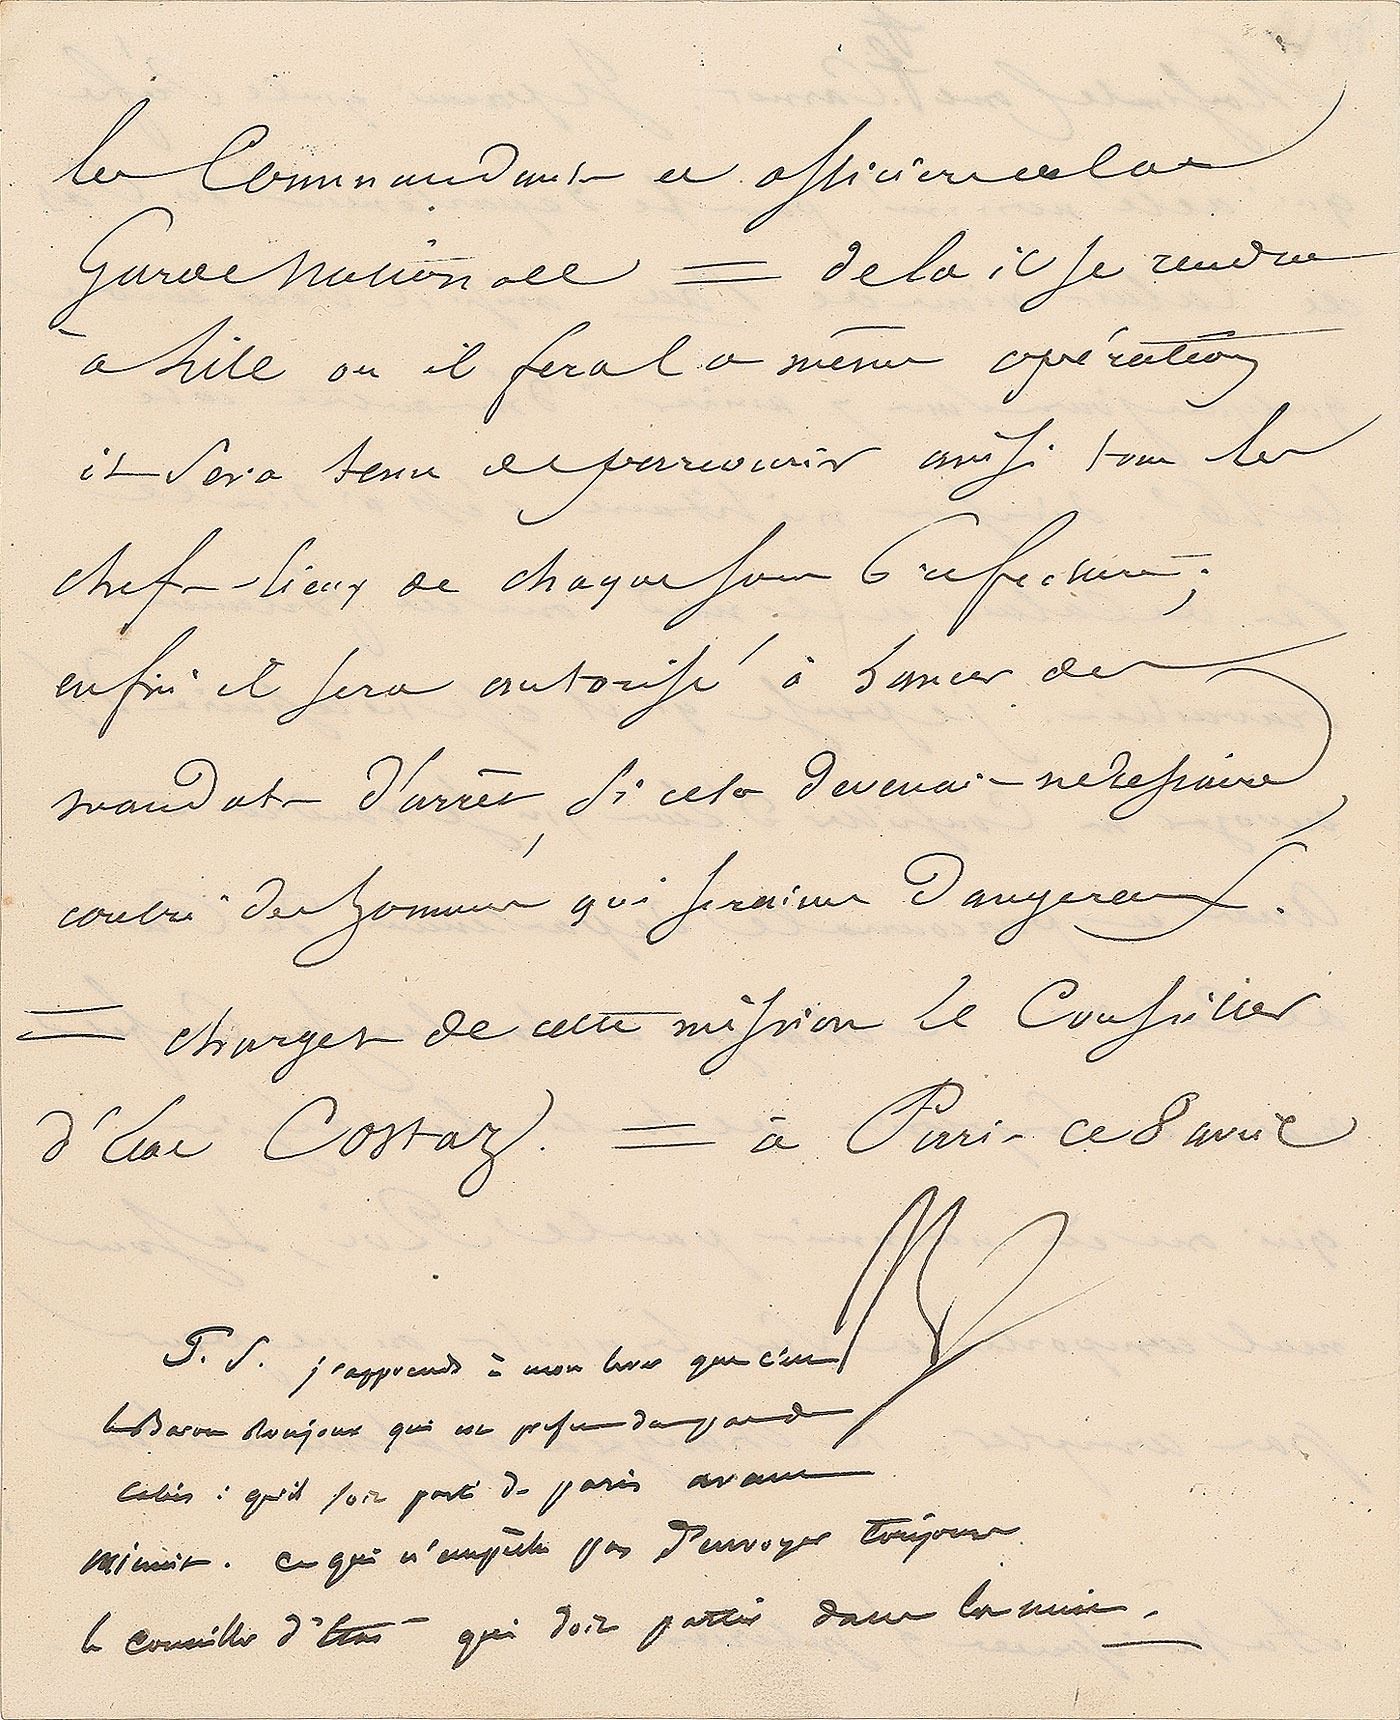 les Commandants et officiers de la
Garde Nationale = de la il se rendra
à Lille ou il fera la même opération
il sera tenu de parcourir aussi tous les
chefs-lieux de chaque sous Prefecture;
enfin il sera autorisé à lancer des
mandats d'arrêt, si cela devenait necessaire,
contre des hommes qui seraient dangereux.
= chargez de cette mission le Conseiller
d'Etat Costaz. = à Paris ce 8 avril
P. S. j'apprends à mon lever que c'est
le Baron Roujoux qui est prefet du pas de
Calais : qu'il soit parti de paris avant
minuit. ce qui n'empêche pas d'envoyer toujours
le conseiller d'Etat qui doit partir dans la nuit.